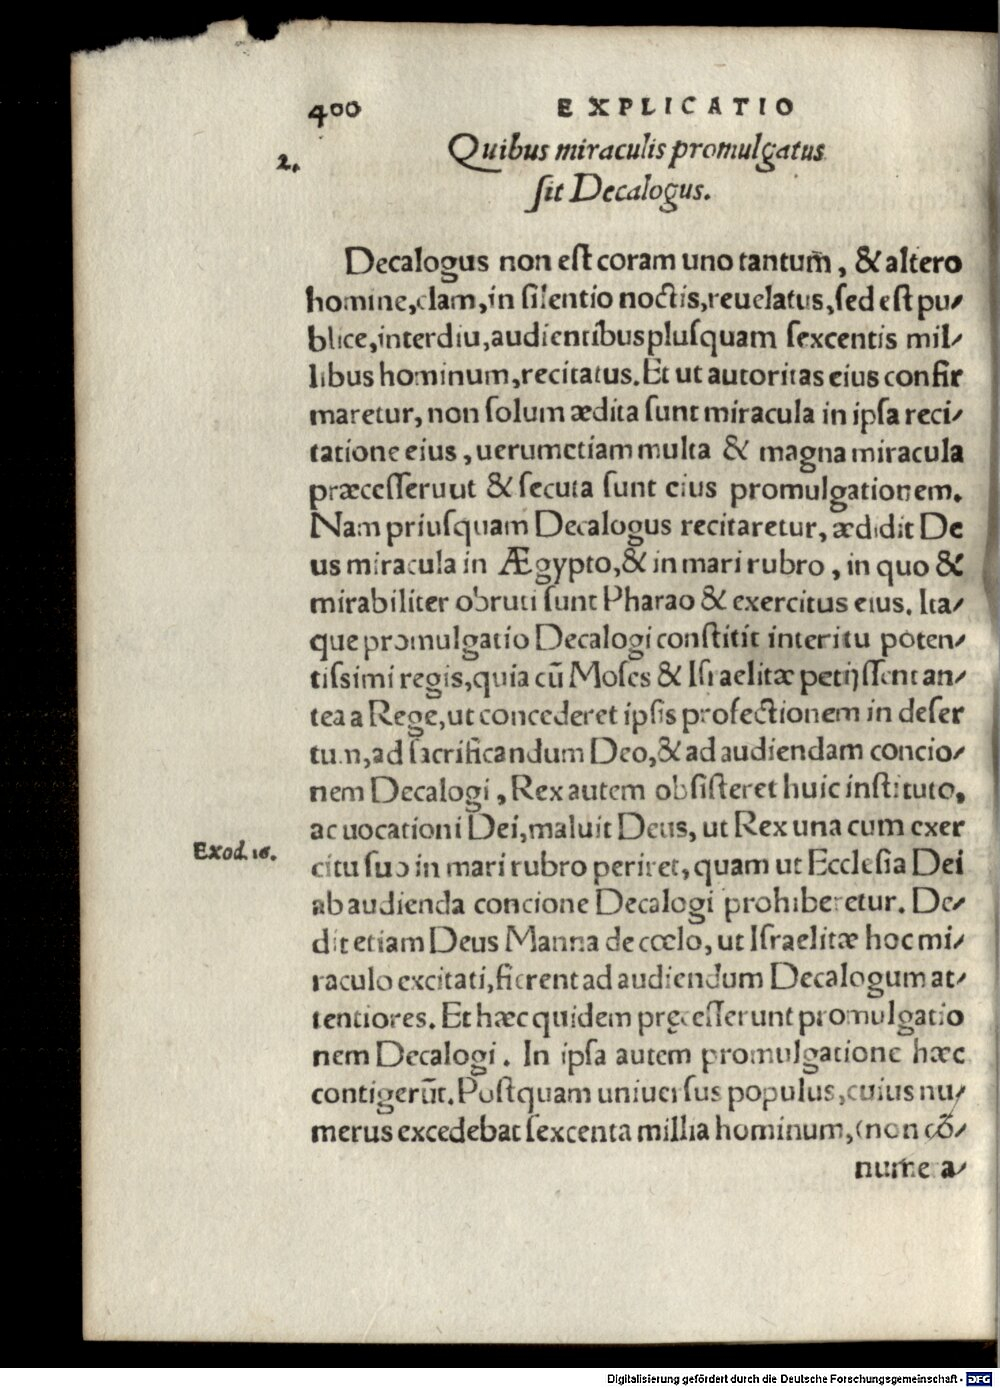 400 EXPLICATIO
2. Quibus miraculis promulgatus
ſit Decalogus.
Decalogus non eſt coram uno tantum̃, & altero
homine, clam, in ſilentio noctis, reuelatus, ſed eſt pu⸗
blice, interdiu, audientibus pluſquam ſexcentis mil⸗
libus hominum, recitatus. Et ut autoritas eius confir
maretur, non ſolum ædita ſunt miracula in ipſa reci⸗
tatione eius, uerumetiam multa & magna miracula
præceſſeruut & ſecuta ſunt eius promulgationem.
Nam priuſquam Decalogus recitaretur, ædidit De
us miracula in Ægypto, & in mari rubro, in quo &
mirabiliter obruti ſunt Pharao & exercitus eius. Ita⸗
que promulgatio Decalogi conſtitit interitu poten⸗
tiſsimi regis, quia cũ Moſes & Iſraelitæ petijſſent an⸗
tea a Rege, ut concederet ipſis profectionem in deſer
tum, ad ſacrificandum Deo, & ad audiendam concio⸗
nem Decalogi, Rex autem obſiſteret huic inſtituto,
ac uocationi Dei, maluit Deus, ut Rex una cum exer
Exod. 16.
citu ſuo in mari rubro periret, quam ut Eccleſia Dei
ab audienda concione Decalogi prohiberetur. De⸗
dit etiam Deus Manna de cœlo, ut Iſraelitæ hoc mi⸗
raculo excitati, fierent ad audiendum Decalogum at⸗
tentiores. Et hæc quidem pręceſſerunt promulgatio
nem Decalogi. In ipſa autem promulgatione hæc
contigerũt. Poſtquam uniuerſus populus, cuius nu⸗
merus excedebat ſexcenta millia hominum, (non cõ⸗
numera⸗
Digitalisierung gefördert durch die Deutsche Forschungsgemeinschaft - DFG